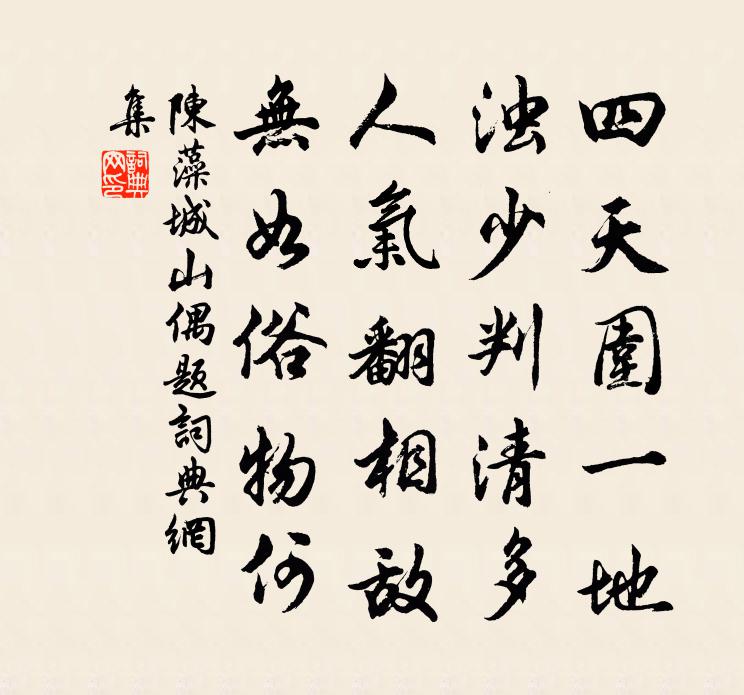 四天圍一地
浊少判清多
人氣翻相敌
無如俗物何
陳藻城山偶題詞典網
集
詞典
网印